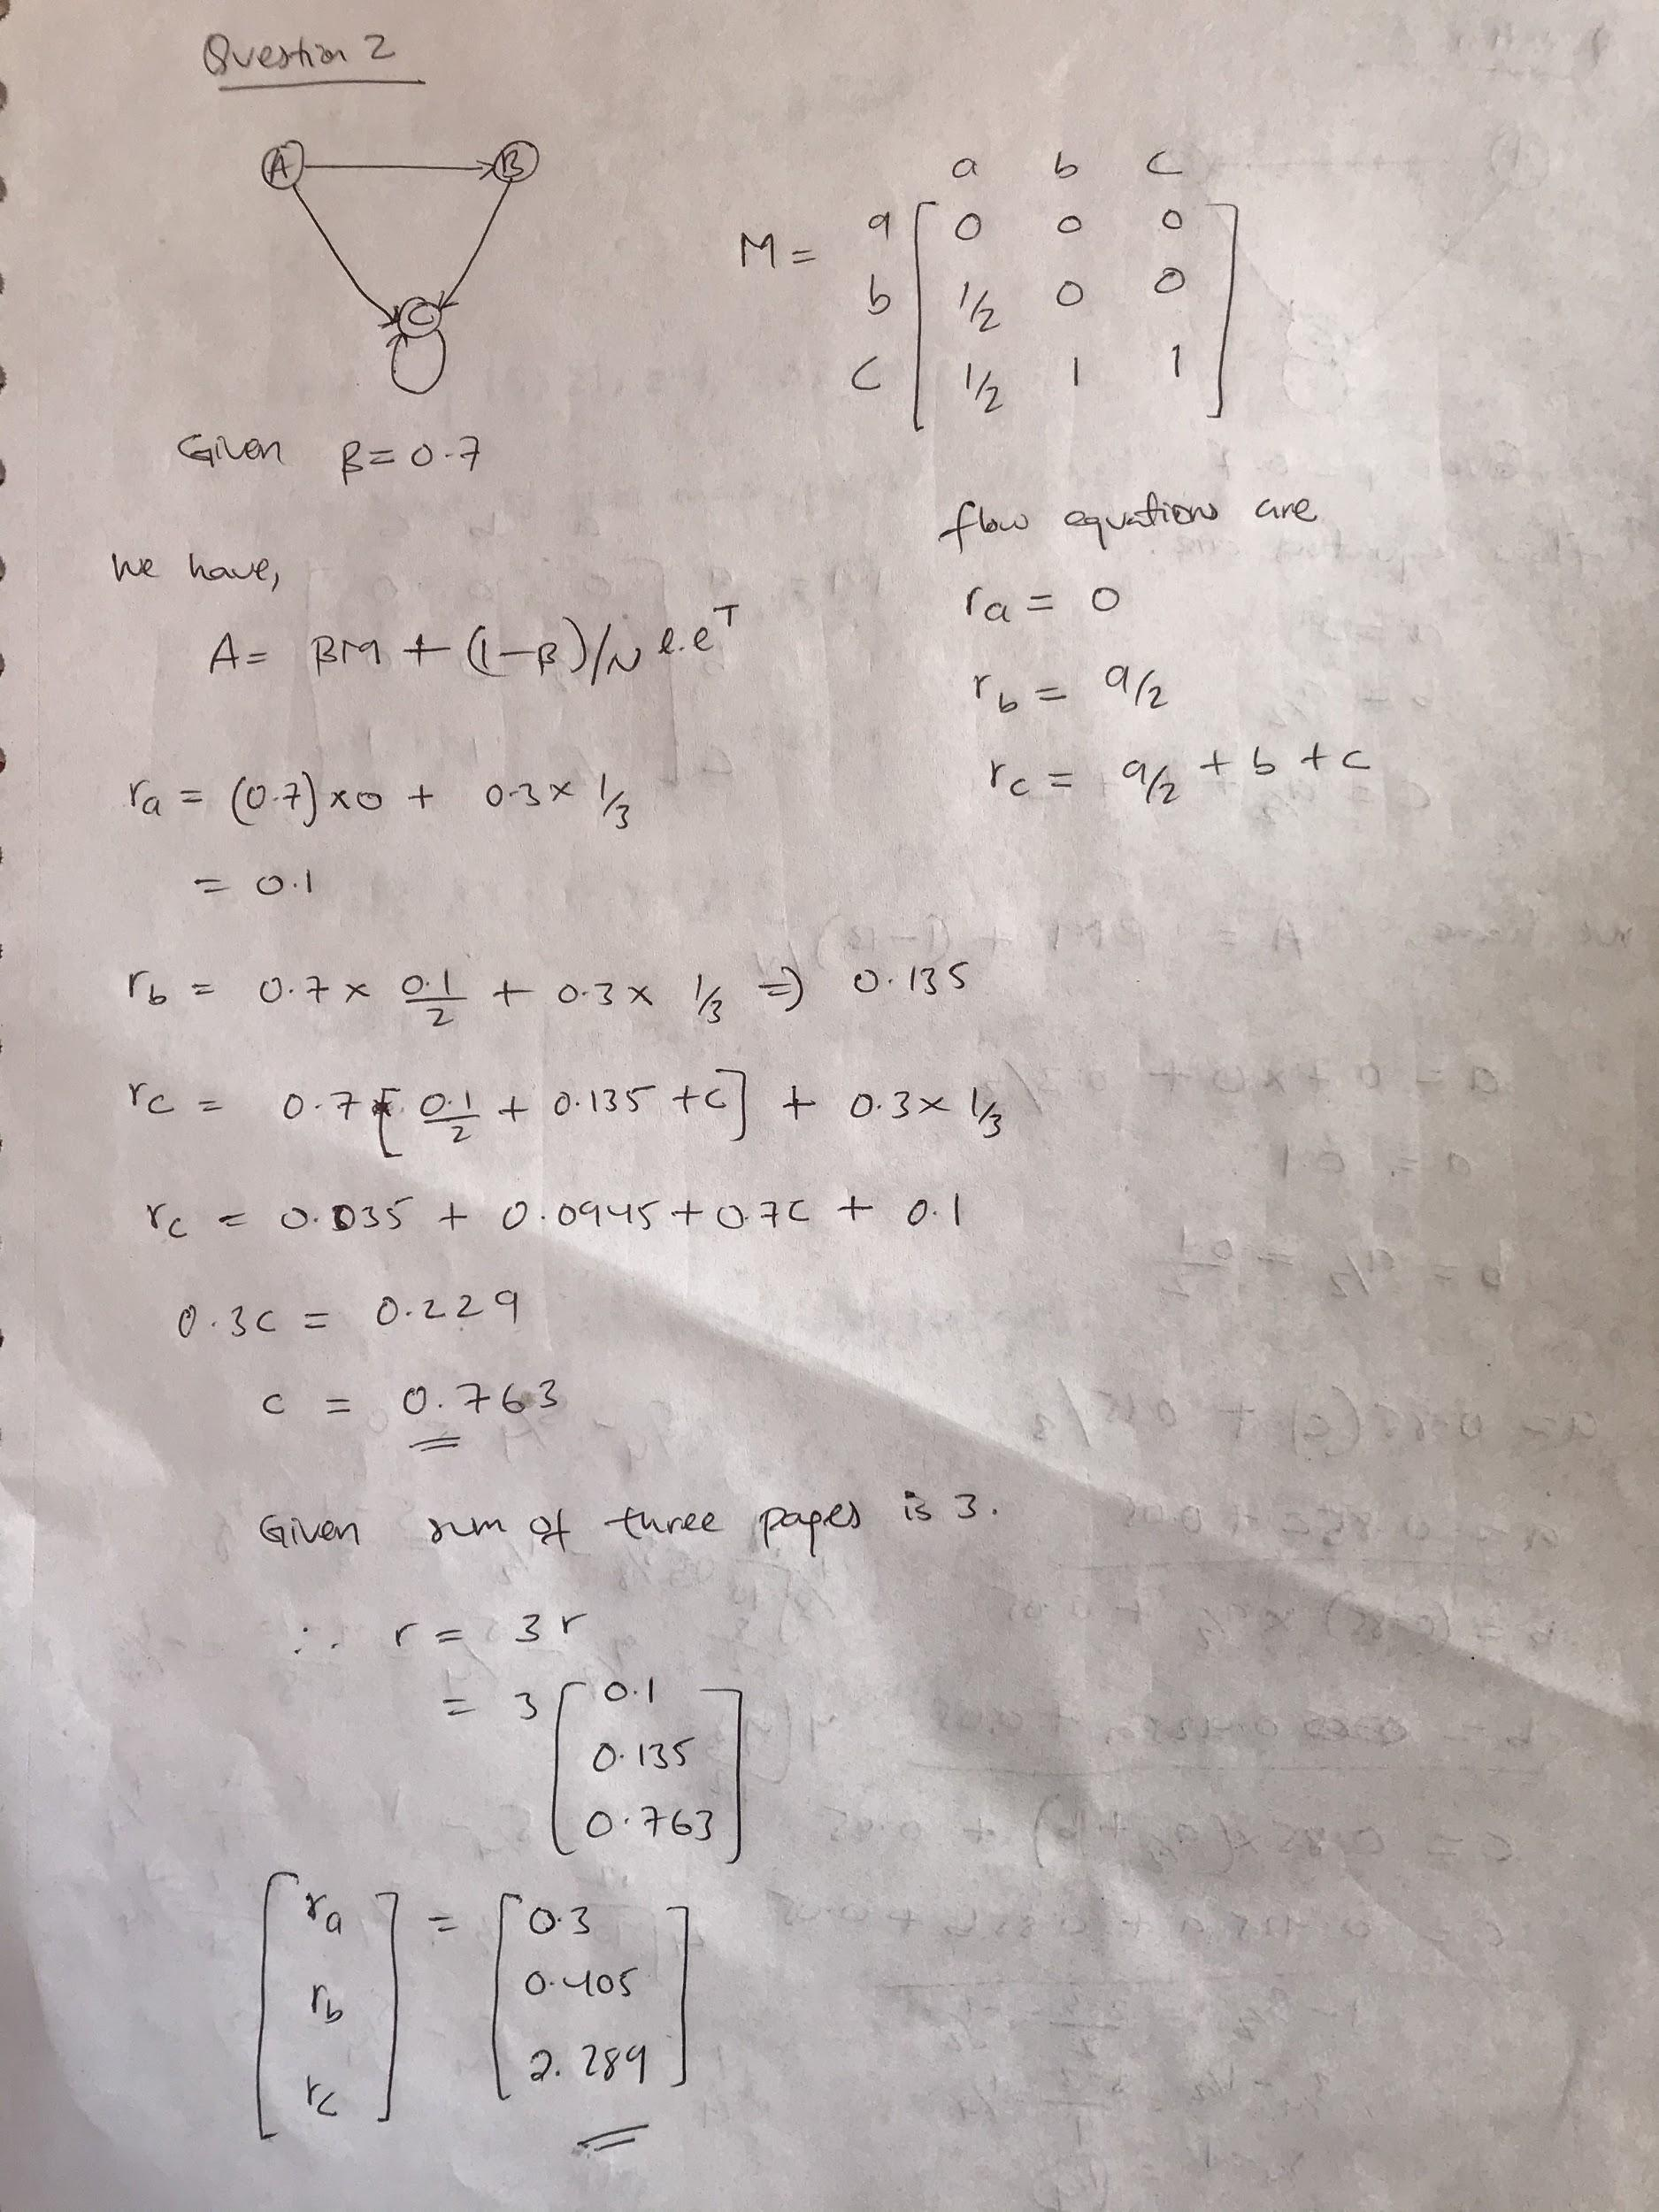 Question 2
A B
C
a b c
M = a [ 0 0 0 ]
b [ 1/2 0 0 ]
c [ 1/2 1 1 ]
Given β = 0.7
flow equations are
ra = 0
rb = a/2
rc = a/2 + b + c
we have,
A = βM + (1-β)/N e.eᵀ
ra = (0.7) x 0 + 0.3 x 1/3
= 0.1
rb = 0.7 x 0.1/2 + 0.3 x 1/3 => 0.135
rc = 0.7 [ 0.1/2 + 0.135 + c ] + 0.3 x 1/3
rc = 0.035 + 0.0945 + 0.7c + 0.1
0.3c = 0.229
c = 0.763
Given sum of three pages is 3.
∴ r = 3r
= 3 [ 0.1
0.135
0.763 ]
[ ra ] = [ 0.3 ]
[ rb ] [ 0.405 ]
[ rc ] [ 2.289 ]